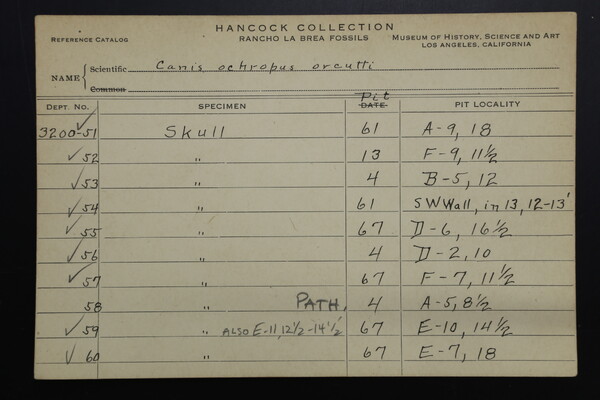 HANCOCK COLLECTION
REFERENCE CATALOG RANCHO LA BREA FOSSILS MUSEUM OF HISTORY, SCIENCE AND ART
LOS ANGELES, CALIFORNIA
NAME { Scientific Canis ochropus orcutti
Common
Pit
DEPT. NO. SPECIMEN DATE PIT LOCALITY
3200-51 Skull 61 A-9, 18
✓ 52 " 13 F-9, 11½
✓ 53 " 4 B-5, 12
✓ 54 " 61 SW Wall, in 13, 12-13'
✓ 55 " 67 D-6, 16½
✓ 56 " 4 D-2, 10
✓ 57 " 67 F-7, 11½
58 " PATH. 4 A-5, 8½
✓ 59 " ALSO E-11, 12½-14½' 67 E-10, 14½
✓ 60 " 67 E-7, 18